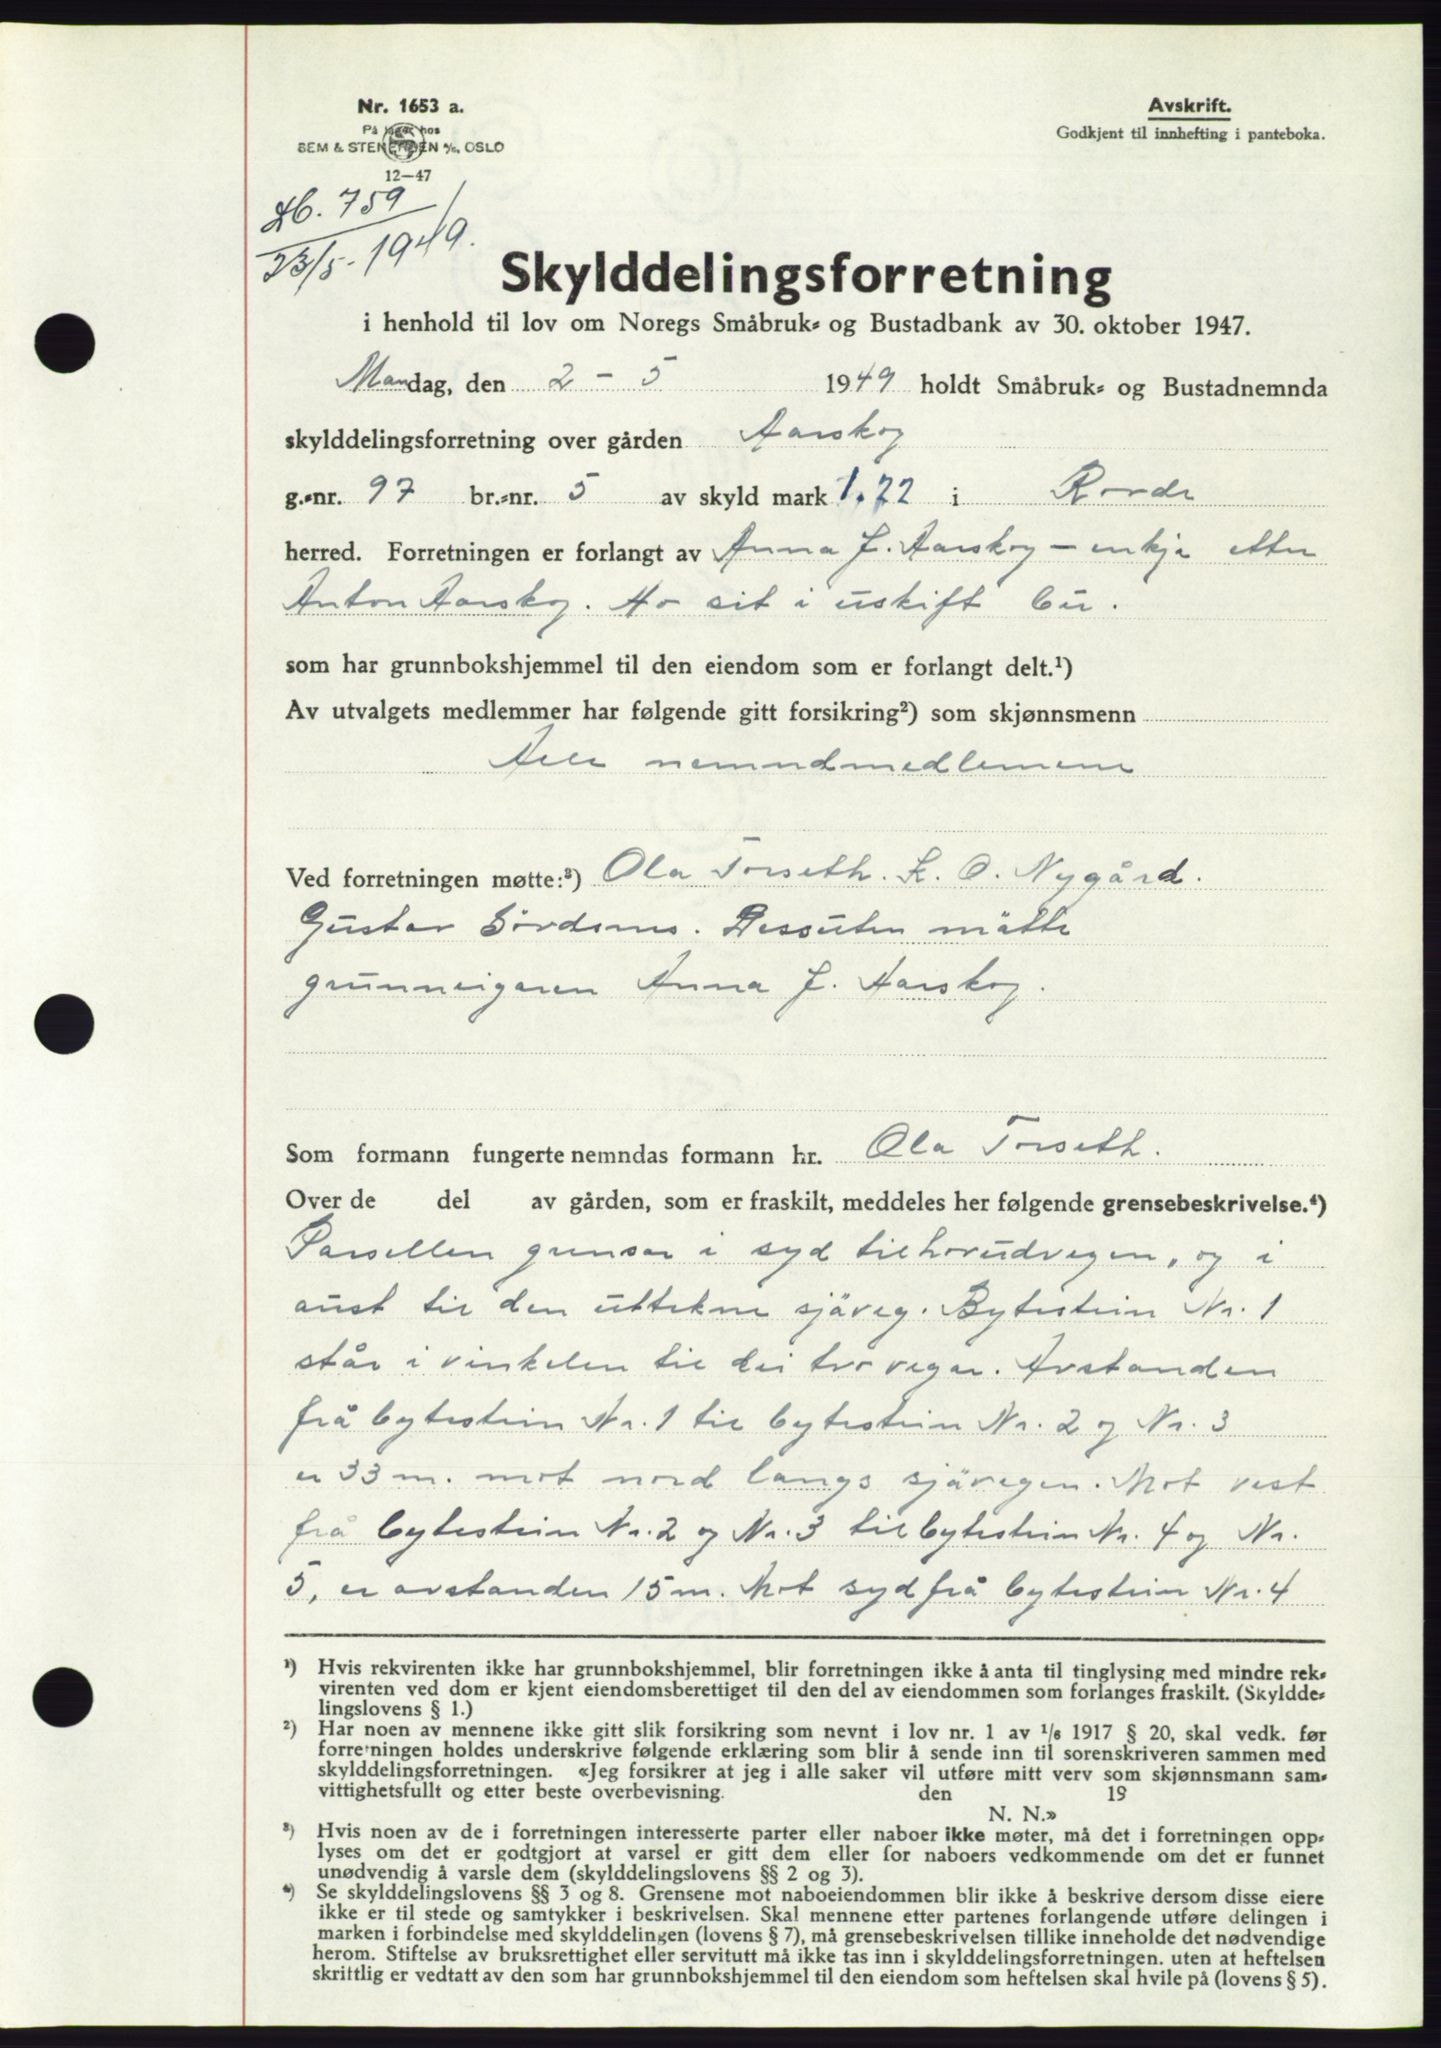 Nr. 1653 a.
På lager hos
SEM & STENERSEN A/S, OSLO
12—47
Avskrift.
Godkjent til innhefting i panteboka.
Db. 759
23/5-1949.
Skylddelingsforretning
i henhold til lov om Noregs Småbruk- og Bustadbank av 30. oktober 1947.
Mandag, den 2 - 5 1949 holdt Småbruk- og Bustadnemnda
skylddelingsforretning over gården Aarskog
g.-nr. 97 br.-nr. 5 av skyld mark 1.72 i Rovde
herred. Forretningen er forlangt av Anna J. Aarskog - enkje etter
Anton Aarskog. Ho sit i uskift bu.
som har grunnbokshjemmel til den eiendom som er forlangt delt.¹)
Av utvalgets medlemmer har følgende gitt forsikring²) som skjønnsmenn
Alle nemndmedlemene
Ved forretningen møtte:³) Ola Torseth. K. O. Nygård.
Gustav Sørdsnes. Dessuten mätte
grunneigaren Anna J. Aarskog.
Som formann fungerte nemndas formann hr. Ola Torseth.
Over de del av gården, som er fraskilt, meddeles her følgende grensebeskrivelse.⁴)
Parsellen grensar i syd til hovudvegen, og i
aust til den uttekne sjäveg. Bytestein Nr. 1
står i vinkelen til dei tvo vegar. Avstanden
frå bytestein Nr. 1 til bytestein Nr. 2 og Nr. 3
er 33 m. mot nord langs sjävegen. Mot vest
frå bytestein Nr. 2 og Nr. 3 til bytestein Nr. 4 og Nr.
5, er avstanden 15 m. Mot syd frå bytestein Nr. 4
¹) Hvis rekvirenten ikke har grunnbokshjemmel, blir forretningen ikke å anta til tinglysing med mindre rek-
virenten ved dom er kjent eiendomsberettiget til den del av eiendommen som forlanges fraskilt. (Skyldde-
lingslovens § 1.)
²) Har noen av mennene ikke gitt slik forsikring som nevnt i lov nr. 1 av 1/6 1917 § 20, skal vedk. før
forretningen holdes underskrive følgende erklæring som blir å sende inn til sorenskriveren sammen med
skylddelingsforretningen. «Jeg forsikrer at jeg i alle saker vil utføre mitt verv som skjønnsmann sam-
vittighetsfullt og etter beste overbevisning. den 19
N. N.»
³) Hvis noen av de i forretningen interesserte parter eller naboer ikke møter, må det i forretningen opp-
lyses om det er godtgjort at varsel er gitt dem eller for naboers vedkommende om det er funnet
unødvendig å varsle dem (skylddelingslovens §§ 2 og 3).
⁴) Se skylddelingslovens §§ 3 og 8. Grensene mot naboeiendommen blir ikke å beskrive dersom disse eiere
ikke er til stede og samtykker i beskrivelsen. Skal mennene etter partenes forlangende utføre delingen i
marken i forbindelse med skylddelingen (lovens § 7), må grensebeskrivelsen tillike inneholde det nødvendige
herom. Stiftelse av bruksrettighet eller servitutt må ikke tas inn i skylddelingsforretningen. uten at heftelsen
skrittlig er vedtatt av den som har grunnbokshjemmel til den eiendom som heftelsen skal hvile på (lovens § 5).